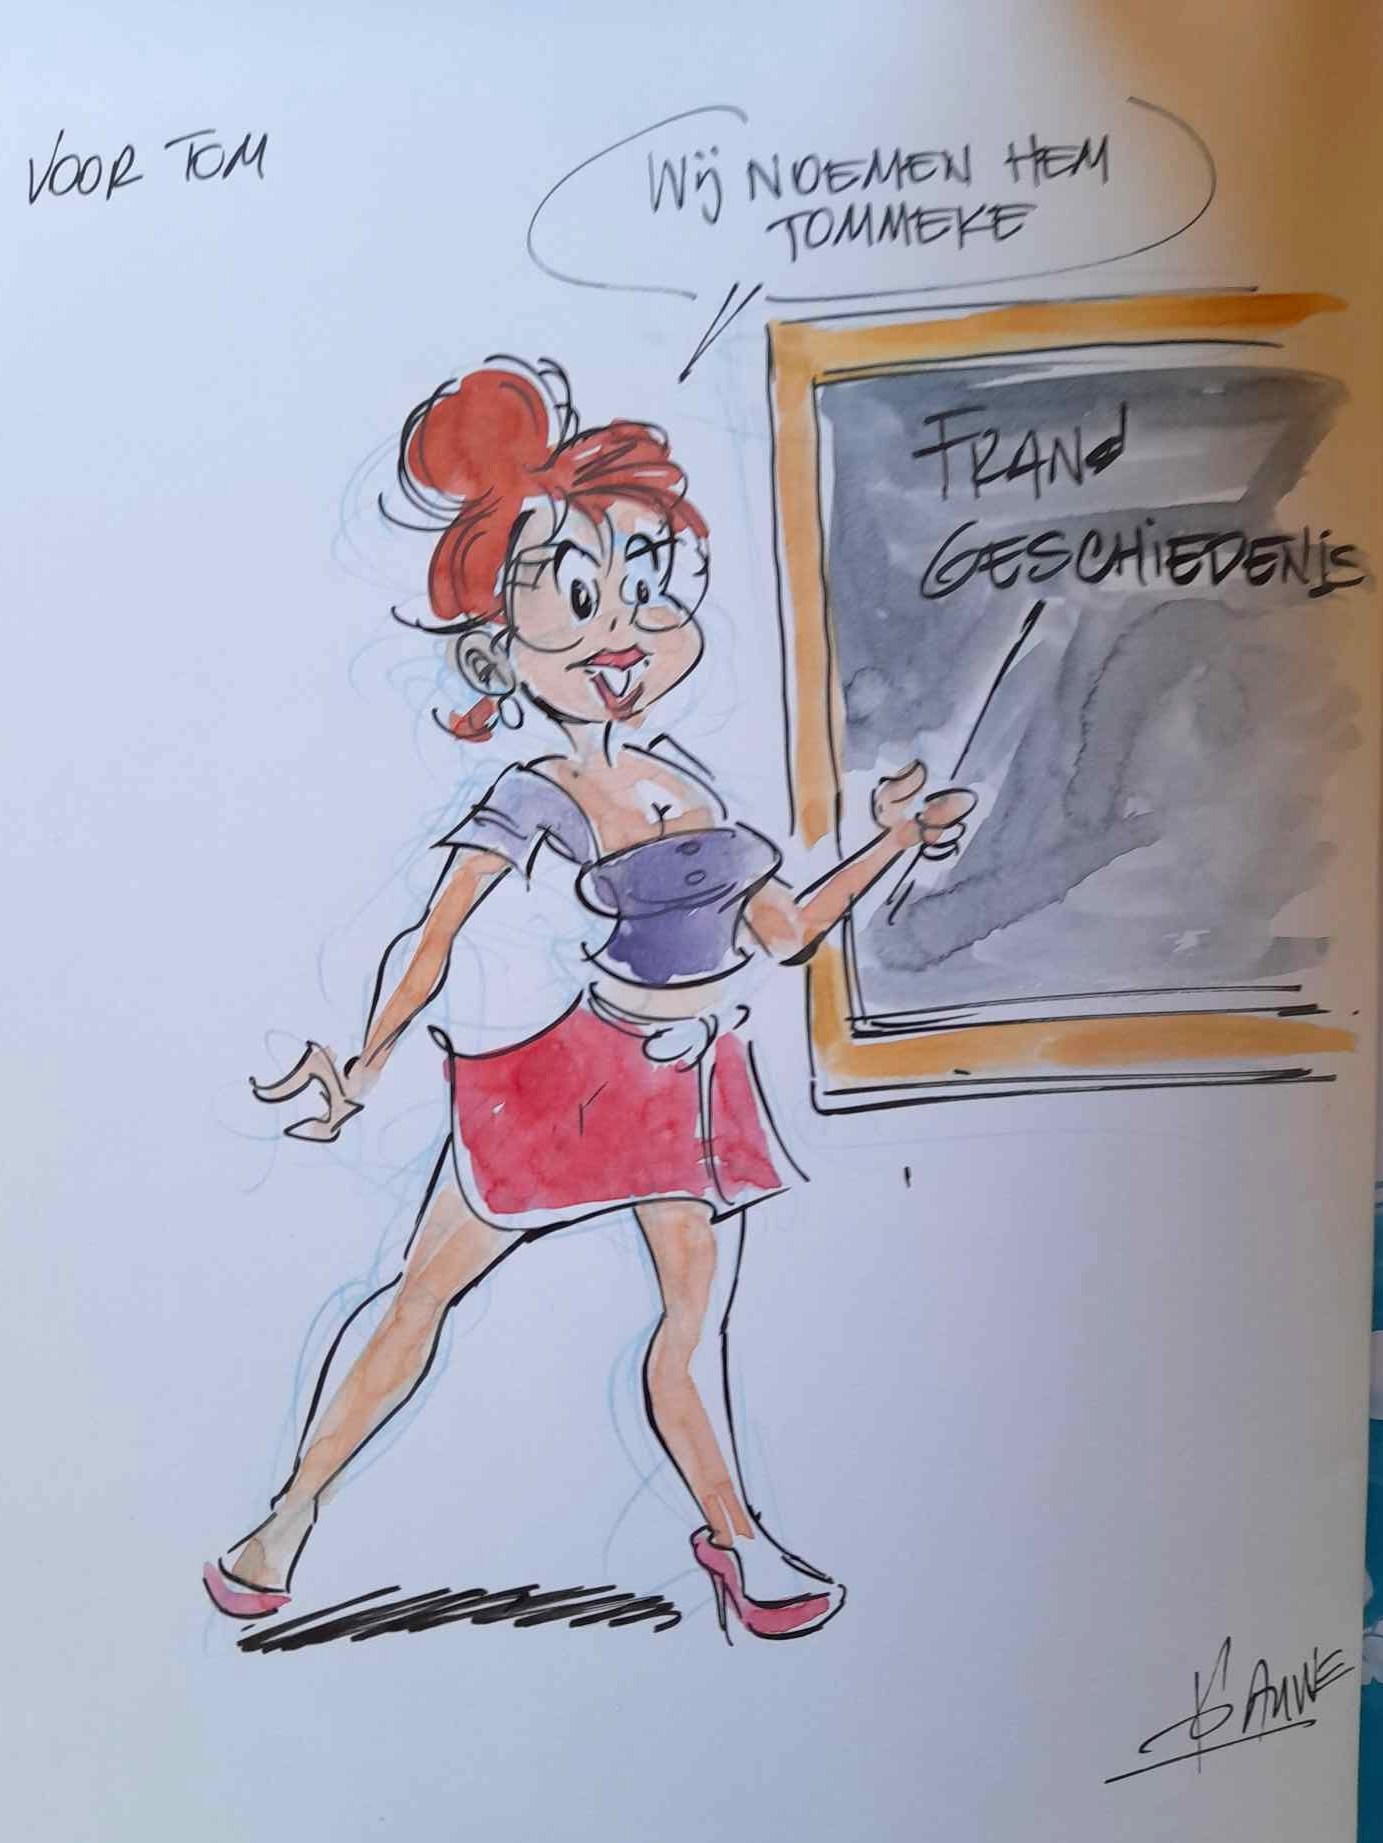 VOOR TOM
Wij NOEMEN HEM
TOMMEKE
FRANS
GESCHIEDENIS